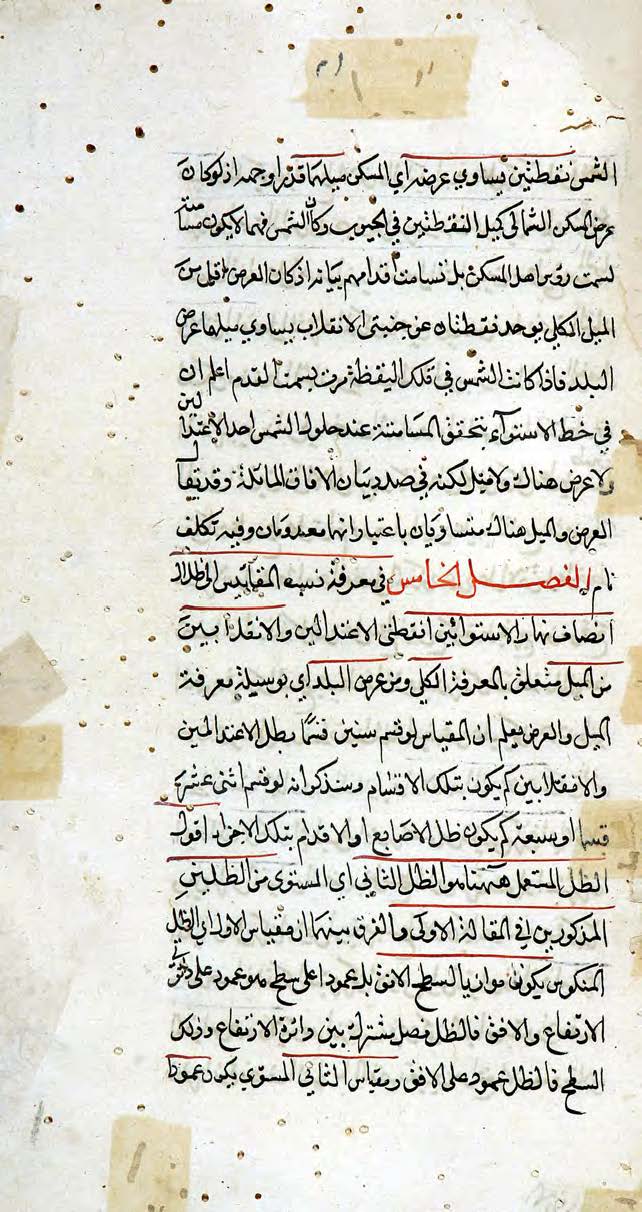 الشمس نقطتين يساوي عرضه اي المسكن ميلهما قدرا وجهه اذ لو كان
عرض المسكن الشمالي كميل النقطتين في الجنوب وكان الشمس فيهما لا يكون مسامتة
لسمت رؤس اهل المسكن بل تسامت اقدامهم بيانه اذ كان العرض اقل من
الميل الكلي يوجد نقطتان عن جنبتي الانقلاب يساوي ميلها عرض
البلد فاذا كانت الشمس في تلك النقطة مرت بسمت القدم اعلم ان
في خط الاستوآء يتحقق المسامتة عند حلول الشمس احد الاعتدالين
ولا عرض هناك ولا ميل لكنه في صدد بيان الافاق المائلة وقد يقال
العرض والميل هناك متساويان باعتبار انهما معدومان وفيه تكلف
تام الفصل الخامس في معرفة نسبة المقاييس الى اظلال
انصاف نهار الاستوائين نقطتي الاعتدالين والانقلابين
من الميل متعلق بالمعرفة الكلي ومن عرض البلد اي بوسيلة معرفة
الميل والعرض يعلم ان المقياس لو قسم ستين قسما وظل الاعتدالين
والانقلابين كم يكون بتلك الاقسام وسنذكر انه لو قسم اثنى عشر
قسما او سبعة كم يكون ظل الاصابع او الاقدام بتلك الاجزاء اقول
الظل المستعمل ههنا هو الظل الثاني اي المستوى من الظلين
المذكورين في المقالة الاولى والفرق بينهما ان مقياس الاول اي الظل
المنكوس يكون موازيا لسطح الافق بل عمودا على سطح هو عمود على دائرتي
الارتفاع والافق فالظل فصل مشترك بين دائرة الارتفاع وذلك
السطح فالظل عمود على الافق ومقياس الثاني المستوي يكون عمودا